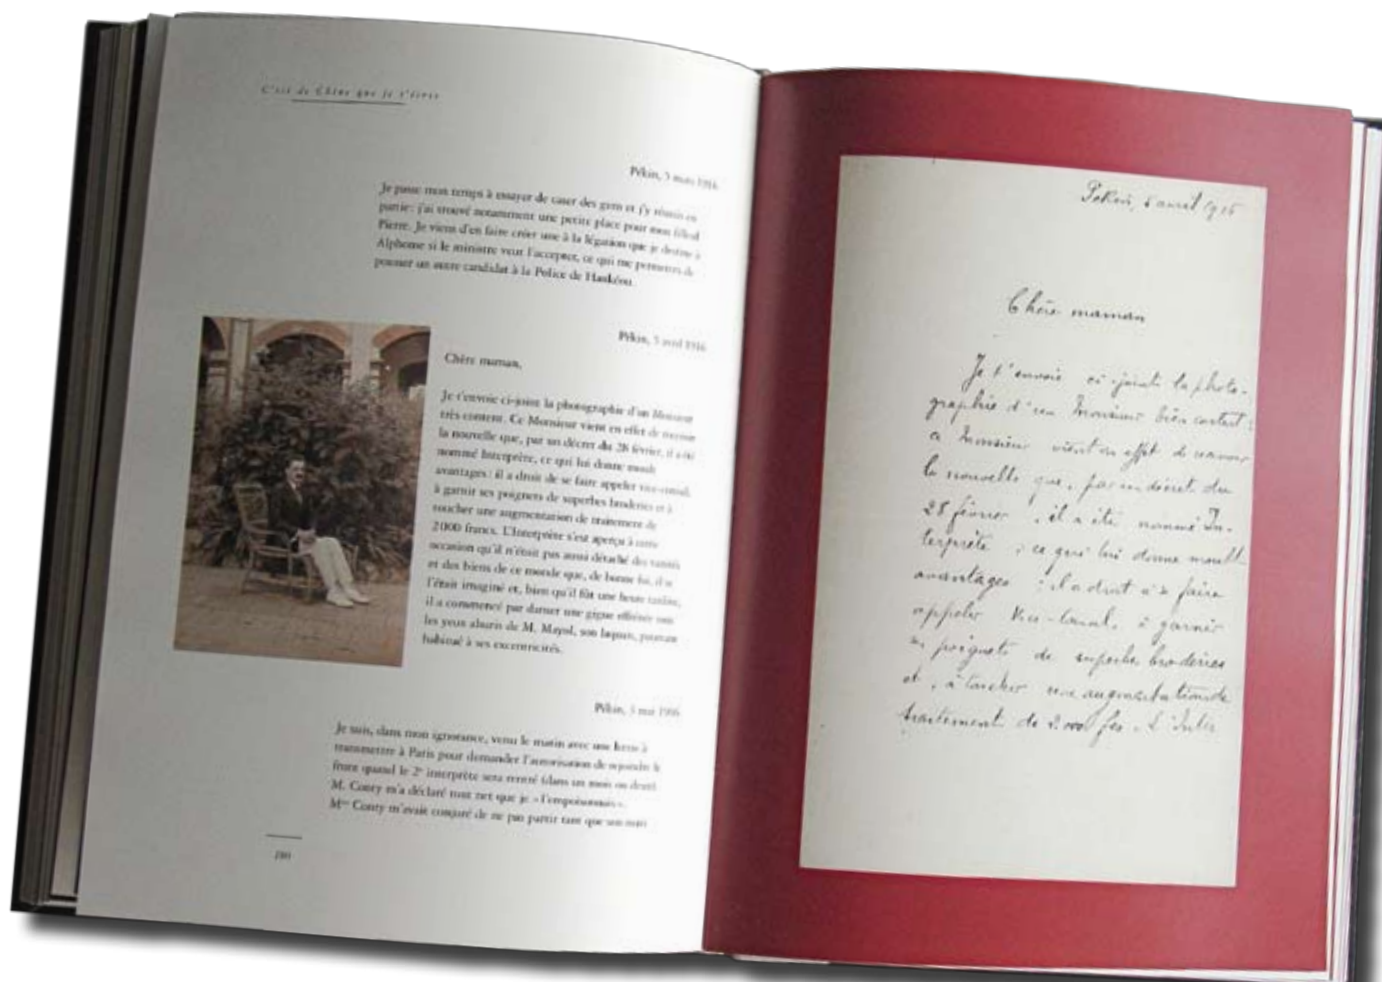 C'est de Chine que je t'écris
Pékin, 3 mars 1916
Je passe mon temps à essayer de caser des gens et j'y réussis en
partie: j'ai trouvé notamment une petite place pour mon filleul
Pierre. Je viens d'en faire créer une à la légation que je destine à
Alphonse si le ministre veut l'accepter, ce qui me permettra de
pousser un autre candidat à la Police de Hankéou.
Pékin, 5 avril 1916
Chère maman,
Je t'envoie ci-joint la photographie d'un Monsieur
très content. Ce Monsieur vient en effet de recevoir
la nouvelle que, par un décret du 28 février, il a été
nommé Interprète, ce qui lui donne moult
avantages: il a droit de se faire appeler vice-consul,
à garnir ses poignets de superbes broderies et à
toucher une augmentation de traitement de
2000 francs. L'Interprète s'est aperçu à cette
occasion qu'il n'était pas aussi détaché des vanités
et des biens de ce monde que, de bonne foi, il se
l'était imaginé et, bien qu'il fût une heure tardive,
il a commencé par danser une gigue effrénée sous
les yeux ahuris de M. Mayol, son laquais, pourtant
habitué à ses excentricités.
Pékin, 3 mai 1916
Je suis, dans mon ignorance, venu le matin avec une lettre à
transmettre à Paris pour demander l'autorisation de rejoindre le
front quand le 2e interprète sera rentré (dans un mois ou deux).
M. Conty m'a déclaré tout net que je « l'empoisonnais ».
Mme Conty m'avait conjuré de ne pas partir tant que son mari
280
Pékin, 5 avril 1916
Chère maman
Je t'envoie ci-joint la photo-
graphie d'un Monsieur bien content:
ce Monsieur vient en effet de recevoir
la nouvelle que, par un décret du
28 février, il a été nommé In-
terprète, ce qui lui donne moult
avantages: il a droit à se faire
appeler Vice-Consul, à garnir
ses poignets de superbes broderies
et, à toucher une augmentation de
traitement de 2.000 fcs. L'Inter